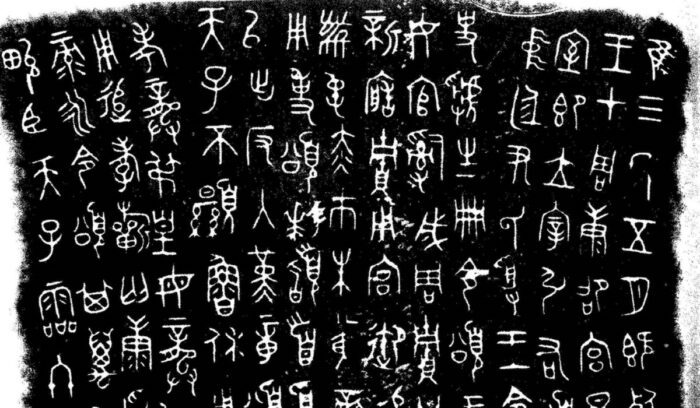 隹三年五月既死
王才周康卲宮
室即立宰引右
廷尹氏受王令
史虢生冊令頌
女官𤔲成周賈
新造賈用宮御
黹屯赤巿朱黃
用事頌拜𩒨首
以出反入堇章頌
天子不顯魯休
考龏叔皇母龏
用追孝𣄨匄康
彔永令頌其萬
畯臣天子霝冬